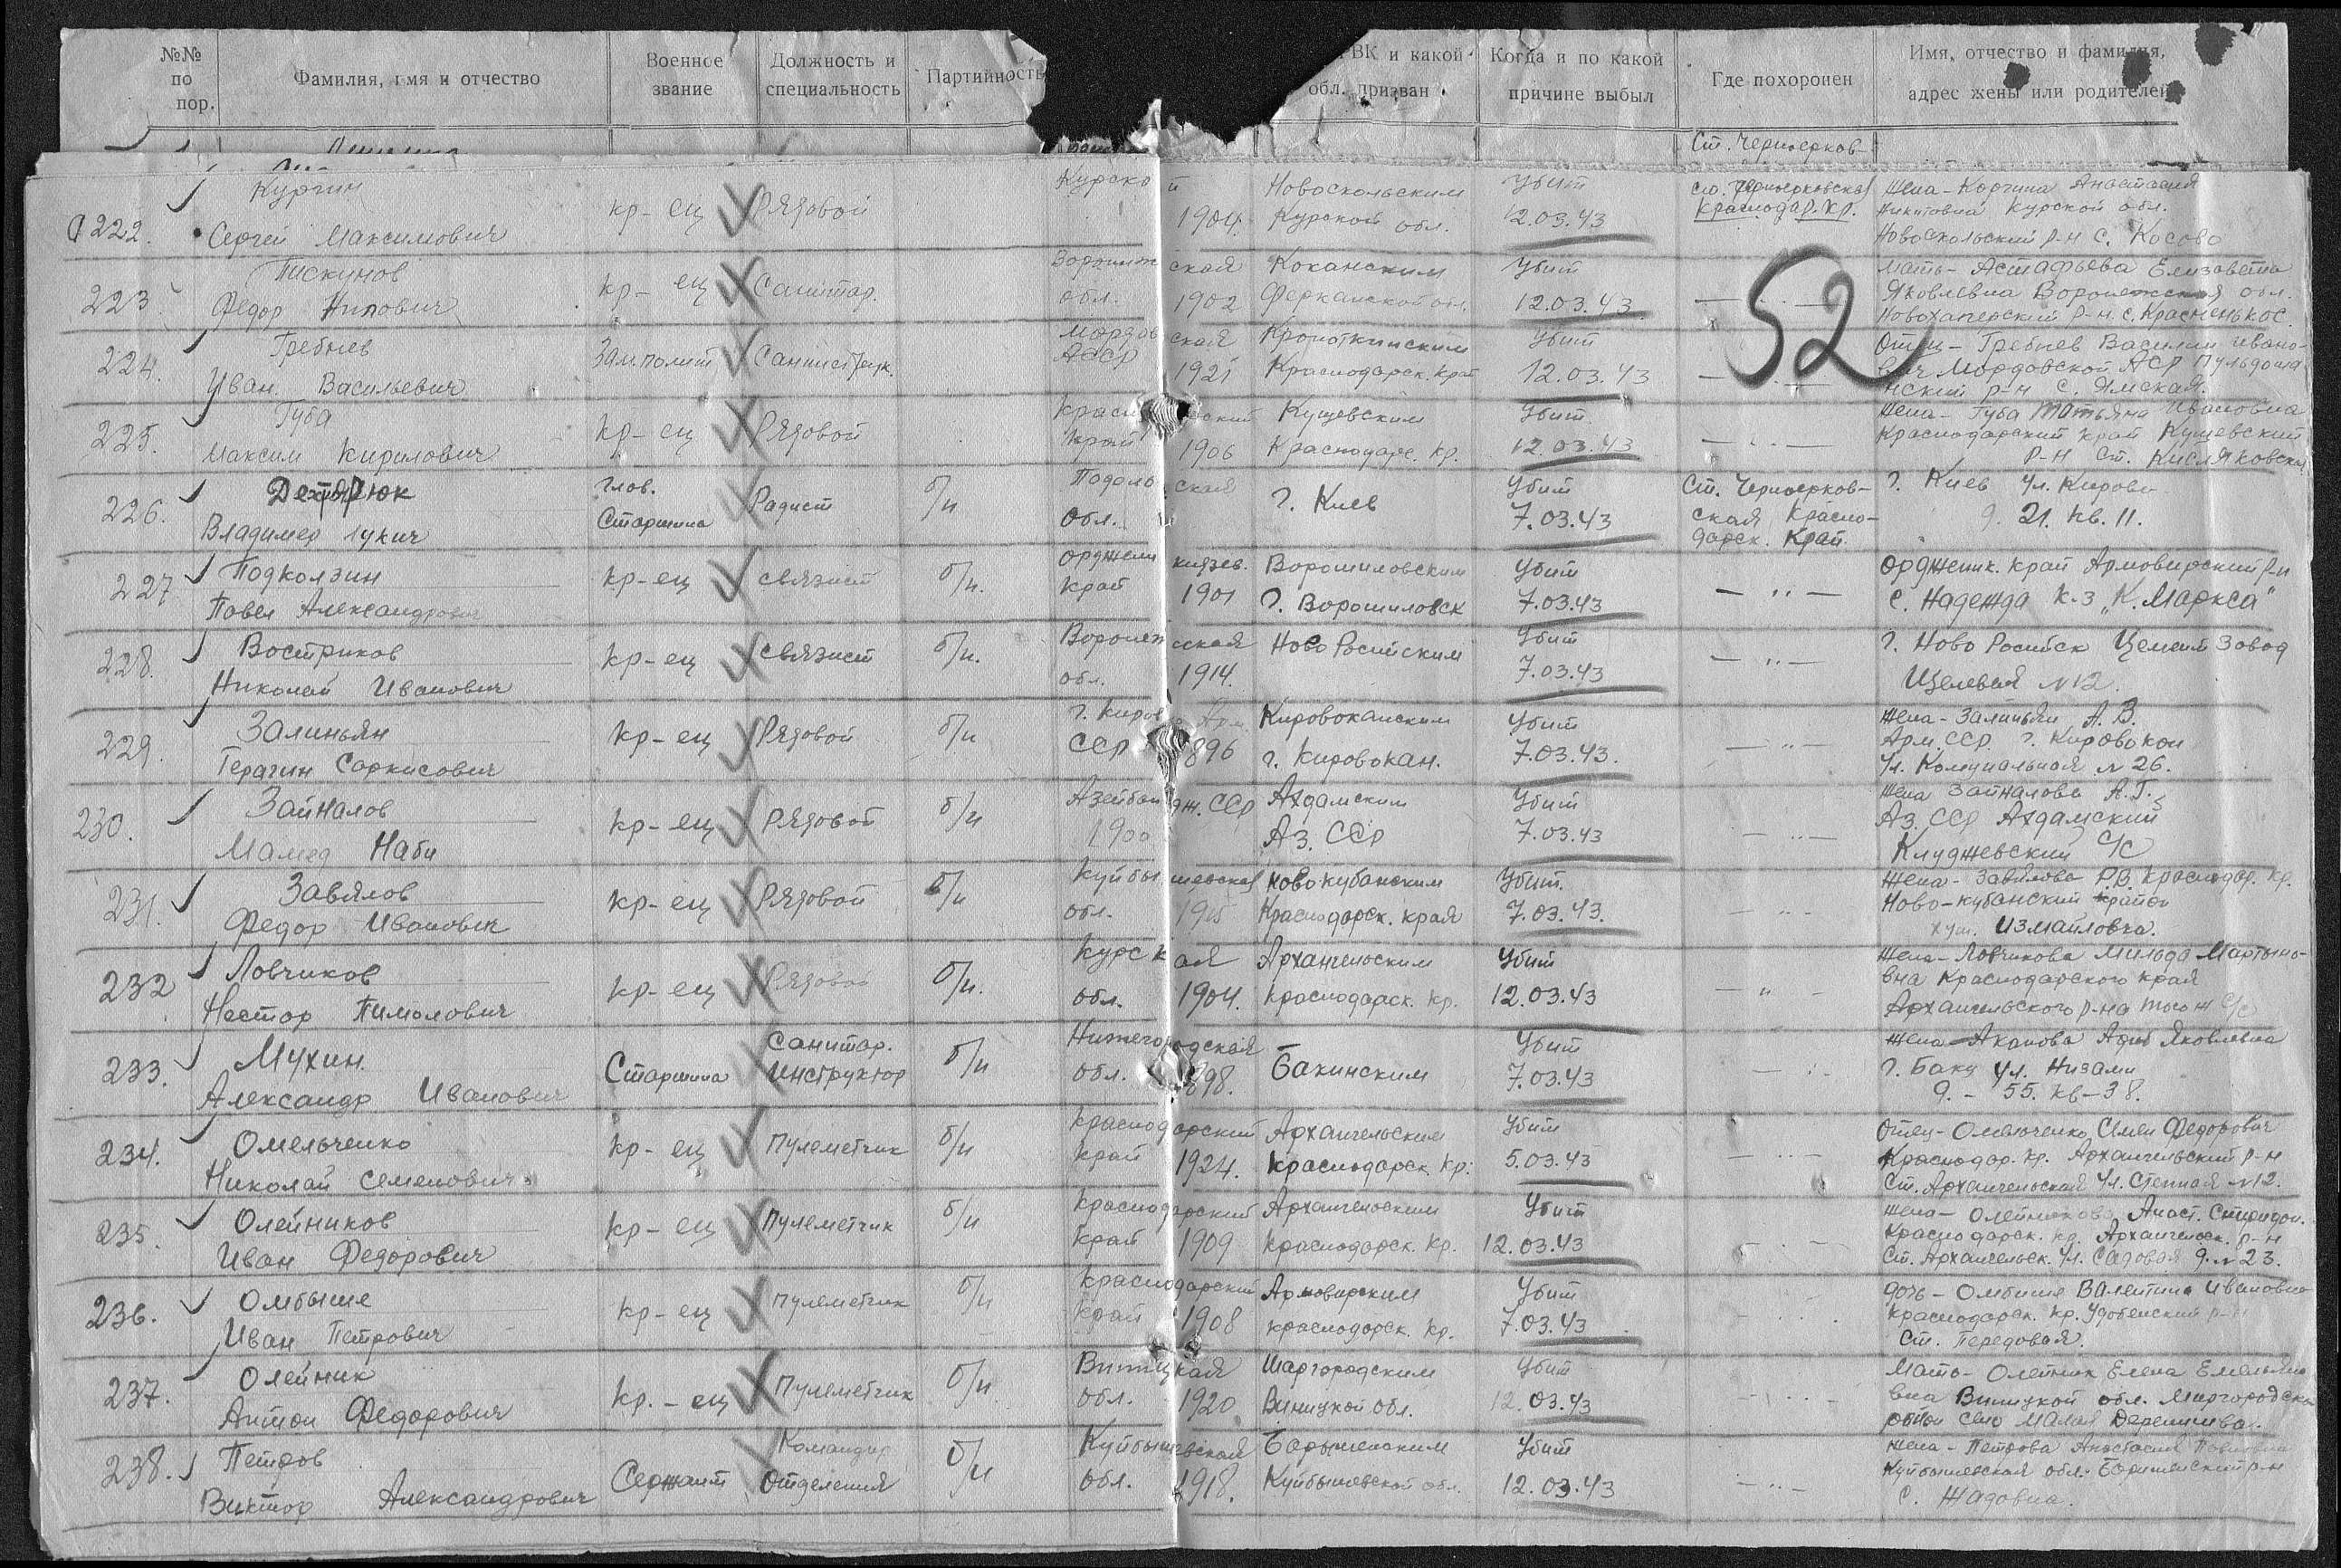 №№ по пор. Фамилия, имя и отчество Военное звание Должность и специальность Партийность ВК и какой обл. призван Когда и по какой причине выбыл Где похоронен Имя, отчество и фамилия, адрес жены или родителей
Ст. Черноерков-
222. Кургин Сергей Максимович кр-ец Рядовой Курской 1904. Новоскольским Курской обл. Убит 12.03.43 ст. Черноерковская Краснодар. кр. Жена - Коргина Анастасия Никитовна Курской обл. Новоскольский р-н с. Косово
52
223 Пискунов Федор Нилович кр-ец Санитар. Воронежская обл. 1902 Коканским Ферганской обл. Убит 12.03.43 — " — Мать - Астафьева Елизавета Яковлевна Воронежская обл. Новохоперский р-н. с.
224. Гребнев Иван Васильевич Зам.полит Мордовская АССР 1921 Кропоткинским Краснодарск. край Убит 12.03.43 — " — Отец - Гребнев Василий Иванович Мордовской АСР р-н с. Ямская.
225. Губа Максим Кирилович кр-ец Рядовой край 1906 Кущевским Краснодарс. кр. Убит 12.03.43 — " — Жена - Губа Татьяна Ивановна Краснодарский край Кущевский р-н ст. Кисляковская
226. Владимер Лукич Глав. Старшина Радист б/п Подольская обл. г. Киев Убит 7.03.43 Ст. Черноерковская Краснодарск. Край г. Киев ул. Кирова д. 21. кв. 11.
227 Подколзин Павел Александрович кр-ец связист б/п. Орджоникидзев. край 1901 Ворошиловским г. Ворошиловск Убит 7.03.43 — " — Орджоник. край Армовирский р-н с. Надежда к-з „К. Маркса"
228. Востриков Николай Иванович кр-ец связист б/п. Воронежская обл. 1914. Ново Росийским Убит 7.03.43 — " — г. Ново Росийск Цемент Завод Щелевая №12.
229. Залиньян Герагин Саркисович кр-ец Рядовой б/п г. Киров Арм ССР 1896 Кировоканским г. Кировокан. Убит 7.03.43. — " — Жена - Залиньян А. В. Арм. ССР. г. Кировокан ул. Комунальная № 26.
230. Зайналов Мамед Наби кр-ец Рядовой б/п Азейбайдж. ССР 1900 Агдамским Аз. ССР Убит 7.03.43 — " — Жена Зайналова А. Г. Аз. ССР Агдамский Клуджевский с/с
231. Завялов Федор Иванович кр-ец Рядовой б/п Куйбышевская обл. 1915 Новокубанским Краснодарск. края Убит. 7.03.43. — " — Жена - Завялова Р.В. Краснодар. кр. Ново-кубанский район хут. Измайловка.
232 Ловчиков Нестор Пимолович кр-ец Рядовой б/п. Курская обл. 1904. Архангельским Краснодарск. кр. Убит 12.03.43 — " — Жена - Ловчикова Мильда Мартыновна Краснодарского края Архангельского р-на того ж с/с
233. Мухин. Александр Иванович Старшина Санитар. инструктор б/п Нижегородская обл. 1898. Бакинским Убит 7.03.43 — " — Жена - Акапова Яковлевна г. Баку ул. Низами д. - 55. кв - 38.
234. Омельченко Николай Семенович кр-ец Пулеметчик б/п Краснодарский край 1924. Архангельским Краснодарск. кр. Убит 5.03.43 — " — Отец - Омельченко Семен Федорович Краснодар. кр. Архангельский р-н ст. Архангельская ул. Степная №12.
235. Олейников Иван Федорович кр-ец Пулеметчик б/п Краснодарский край 1909 Архангельским Краснодарск. кр. Убит 12.03.43 — " — Жена - Олейникова Анаст. Спиридон. Краснодарск. кр. Архангельск. р-н ст. Архангельск. ул. Садовая д. № 23.
236. Омбыше Иван Петрович кр-ец Пулеметчик б/п Краснодарский край 1908 Армовирским Краснодорск. кр. Убит 7.03.43 — " — дочь - Омбише Валентина Ивановна Краснодарск. кр. Удобенский р-н ст. Передовая.
237. Олейник Антон Федорович кр.-ец Пулеметчик б/п. Виницкая обл. 1920 Шаргородским Виницкой обл. Убит 12.03.43 — " — Мать - Олейник Елена Емельяновна Виницкой обл. село Малая Деренчева.
238. Петров Виктор Александрович Сержант Командир отделения б/п Куйбышевская обл. 1918. Барышенским Куйбышевской обл. Убит 12.03.43 — " — Жена - Петрова Анастасия Павловна Куйбышевская обл. Баришенский р-н с. Жадовка.